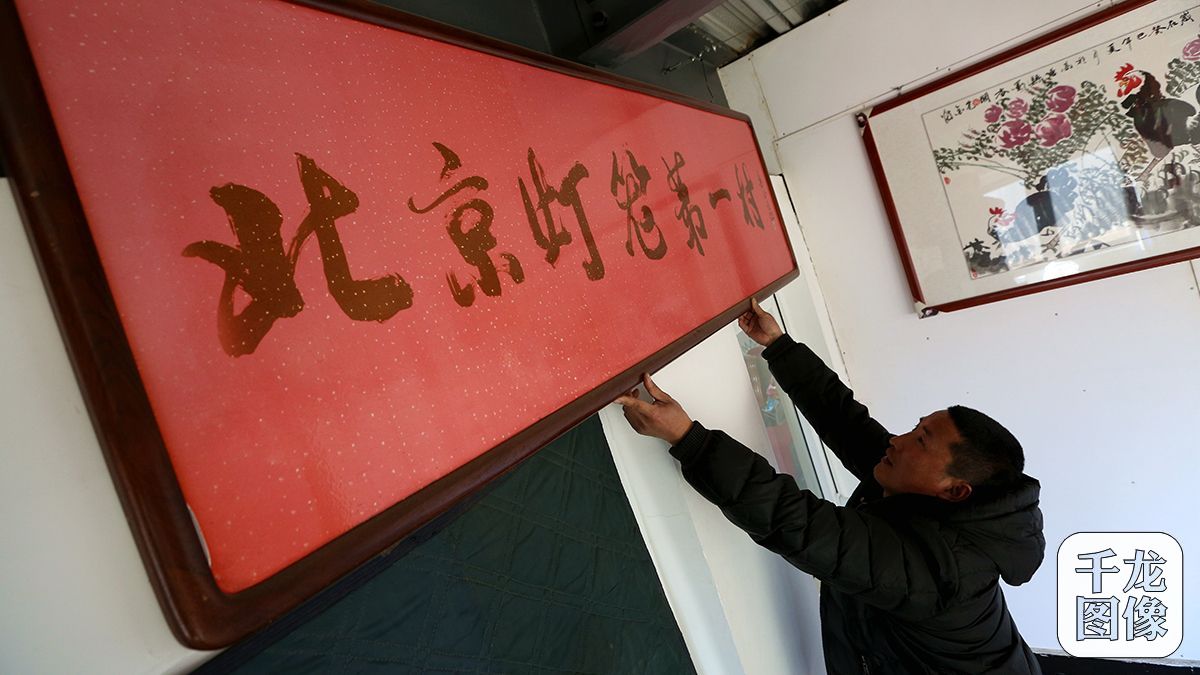 北京灯笼第一村
千龙
图像